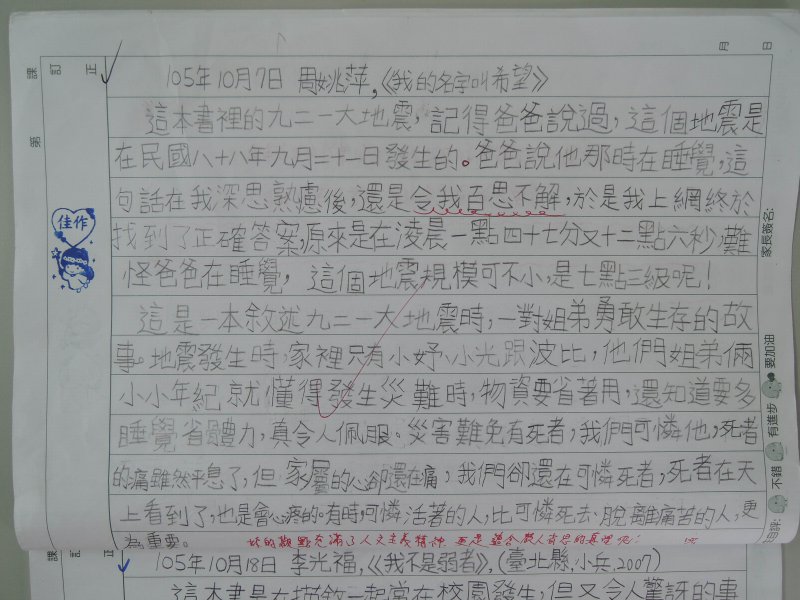 月　日
課　訂　正
第
105年10月7日 周姚萍,《我的名字叫希望》
這本書裡的九二一大地震,記得爸爸說過,這個地震是
在民國八十八年九月二十一日發生的。爸爸說他那時在睡覺,這
句話在我深思熟慮後,還是令我百思不解,於是我上網終於
找到了正確答案,原來是在淩晨一點四十七分又十二點六秒,難
怪爸爸在睡覺,這個地震規模可不小,是七點三級呢!
這是一本敘述九二一大地震時,一對姐弟勇敢生存的故
事。地震發生時,家裡只有小妤、小光跟波比,他們姐弟倆
小小年紀就懂得發生災難時,物資要省著用,還知道要多
睡覺省體力,真令人佩服。災害難免有死者,我們可憐他,死者
的痛雖然平息了,但家屬的心卻還在痛,我們卻還在可憐死者,死者在天
上看到了,也是會心疼的。有時,可憐活著的人,比可憐死去、脫離痛苦的人,更
為重要。
你的觀點充滿了人文主義精神
佳作
家長簽名:
要加油
有進步
不錯
訂　正
105年10月18日 李光福,《我不是弱者》,(臺北縣,小兵,2007)
這本書是在描敘一起常在校園發生,但又令人驚訝的事